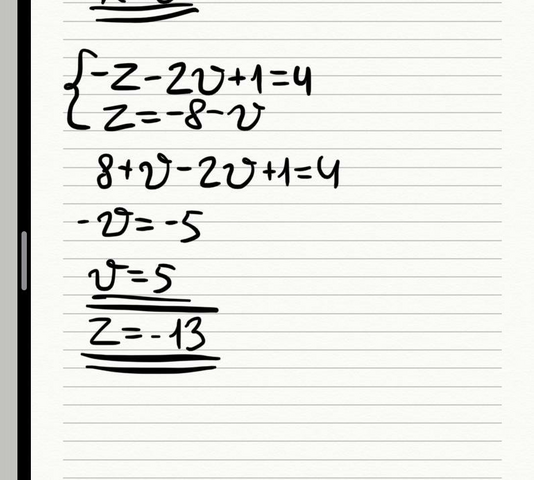 -z-2v+1=4
z=-8-v
8+v-2v+1=4
-v=-5
v=5
z=-13